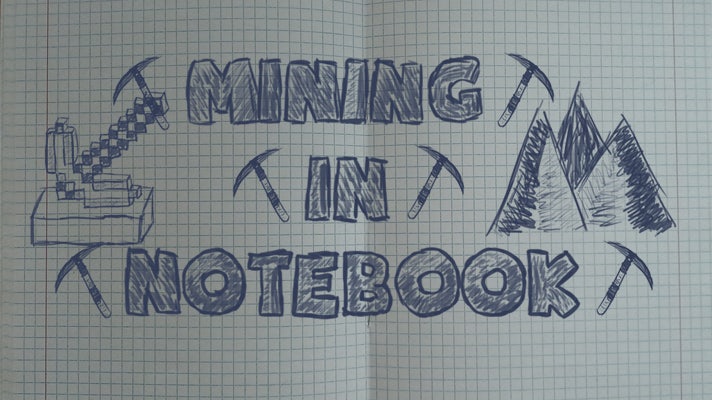 MINING
IN
NOTEBOOK